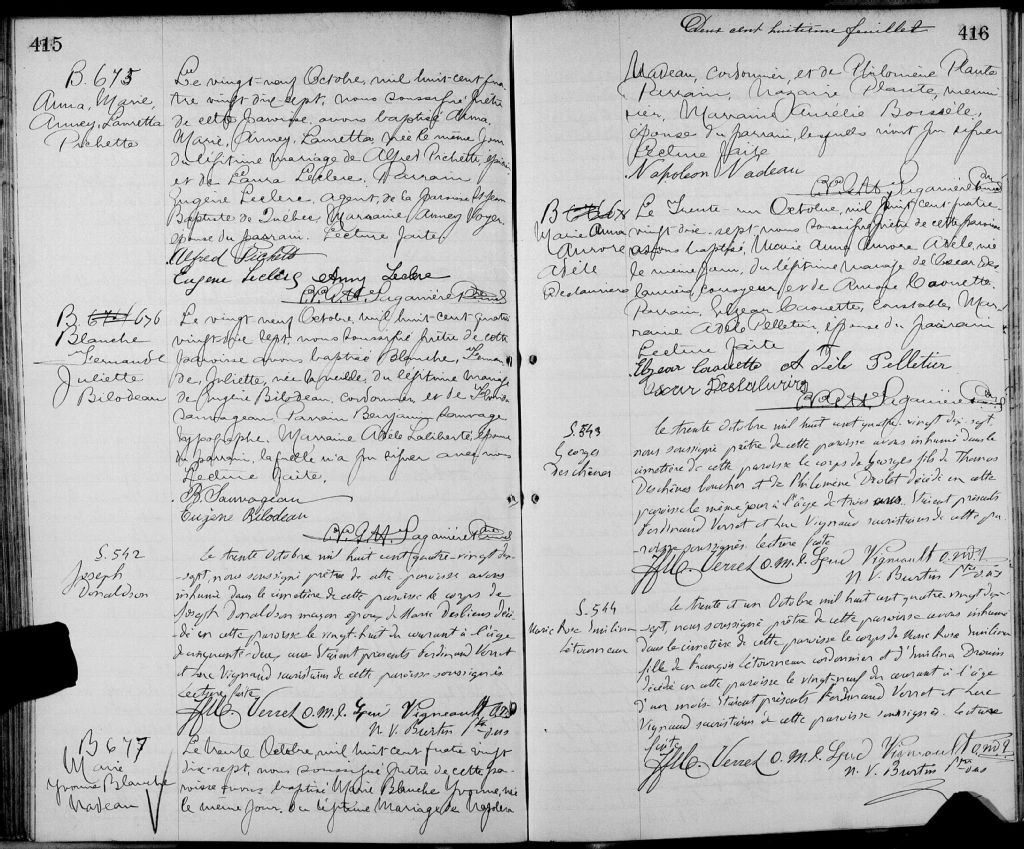 415
B. 675
Anna, Marie,
Anney, Lauretta
Pichette
Le vingt-neuf Octobre, mil huit-cent qua
tre vingt dix sept, nous soussigné prêtre
de cette paroisse, avons baptisé Anna,
Marie, Anney, Lauretta, née le même jour
du légitime mariage de Alfred Pichette, épicier
et de Laura Leclerc. Parrain
Eugène Leclerc, agent, de la paroisse St Jean
Baptiste de Québec, Marraine Anney Voyer
épouse du parrain. Lecture faite
Alfred Pichette
Eugène Leclerc Anny Leclerc
Laganière
B 676
Blanche
Fernande
Juliette
Bilodeau
Le vingt neuf Octobre, mil huit-cent quatre
vingt dix sept, nous soussigné prêtre de cette
paroisse avons baptisé Blanche, Fernan
de, Juliette, née la veille, du légitime mariage
de Eugène Bilodeau, cordonnier et de
Sauvageau. Parrain Benjamin Sauvage
typographe, Marraine Adèle Laliberté, épouse
du parrain, laquelle n'a pu signer avec nous
Lecture faite,
B. Sauvageau
Eugène Bilodeau
Laganière
S. 542
Joseph
Donaldson
Le trente Octobre mil huit cent quatre-vingt dix
-sept, nous soussigné prêtre de cette paroisse avons
inhumé dans le cimetière de cette paroisse le corps de
Joseph Donaldson maçon époux de Marie Desbiens décé
dé en cette paroisse le vingt-huit du courant à l'âge
de cinquante-deux ans Étaient présents Ferdinand Verret
et Luc Vignaud sacristains de cette paroisse soussignés
Lecture faite
Verret O.M.I. Luc Vigneault
N. V. Burtin
B 677
Marie
Yvonne Blanche
Nadeau
Le trente Octobre, mil huit cent quatre vingt
dix-sept, nous soussigné prêtre de cette pa-
roisse avons baptisé Marie Blanche Yvonne, née
le même jour du légitime Mariage de Napoléon
Deux cent huitième feuillet
416
Nadeau, cordonnier, et de Philomène Plante
Parrain, Nazaire Plante, menui
sier, Marraine Aurélie Bosselé,
épouse du parrain, lesquels n'ont pu signer
Lecture faite
Napoleon Nadeau
Laganière
B 678
Marie Anna
Aurore
Adèle
Deslauriers
Le Trente-un Octobre, mil huit cent quatre-
vingt dix-sept, nous soussigné prêtre de cette paroisse
avons baptisé, Marie Anna Aurore Adèle, née
le même jour, du légitime mariage de Oscar Des
lauriers, corroyeur, et de Amanda Caouette.
Parrain, Elzear Caouette, constable, Mar
raine Adèle Pelletier, épouse du parrain
Lecture faite
Elzear Caouette Adele Pelletier
Oscar Deslauriers
Laganière
S. 543
Georges
Deschênes
Le trente Octobre mil huit cent quatre-vingt dix-sept,
nous soussigné prêtre de cette paroisse avons inhumé dans le
cimetière de cette paroisse le corps de Georges fils de Thomas
Deschênes boucher et de Philomène Drolet décédé en cette
paroisse le même jour à l'âge de trois ans. Étaient présents
Ferdinand Verret et Luc Vignaud sacristains de cette pa-
roisse soussignés. Lecture faite
Verret O.M.I. Luc Vigneault
N. V. Burtin
S. 544
Marie Rose Emilina
Létourneau
Le trente et un Octobre mil huit cent quatre vingt dix-
-sept, nous soussigné prêtre de cette paroisse avons inhumé
dans le cimetière de cette paroisse le corps de Marie Rose Emilina
fille de François Létourneau cordonnier et d'Emilina Drouin
décédée en cette paroisse le vingt-neuf du courant à l'âge
d'un mois Étaient présents Ferdinand Verret et Luc
Vignaud sacristains de cette paroisse soussignés. Lecture
faite
Verret O.M.I. Luc Vigneault
N. V. Burtin